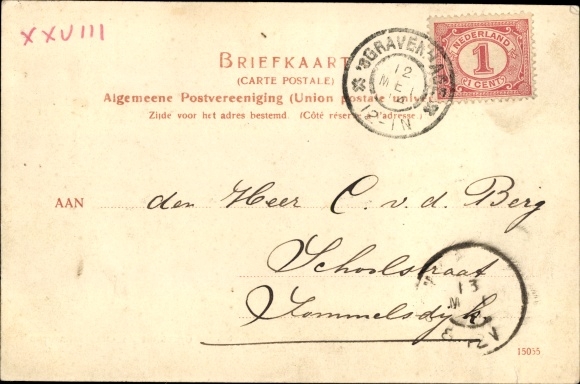 XXVIII
BRIEFKAART
(CARTE POSTALE)
Algemeene Postvereeniging (Union postale univ
Zijde voor het adres bestemd. (Côté réser l'adresse.)
'SGRAVENHAGE
12
MEI
12-1N
NEDERLAND
1
CENT
AAN den Heer C. v. d. Berg
Schoolstraat
Sommelsdyk
13
15055